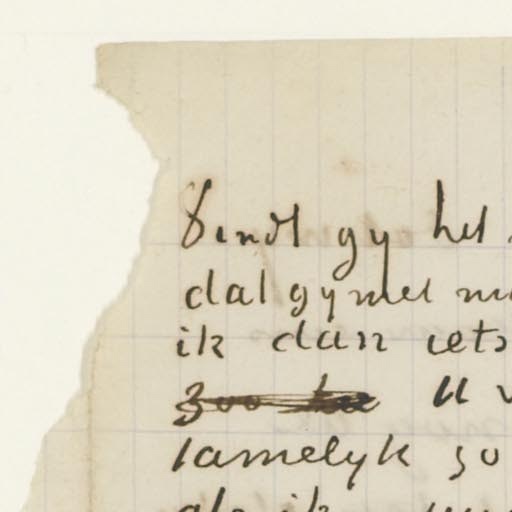 Vindt gy het
dat gy met
ik dan iets
zoo U
tamelyk go
als ik